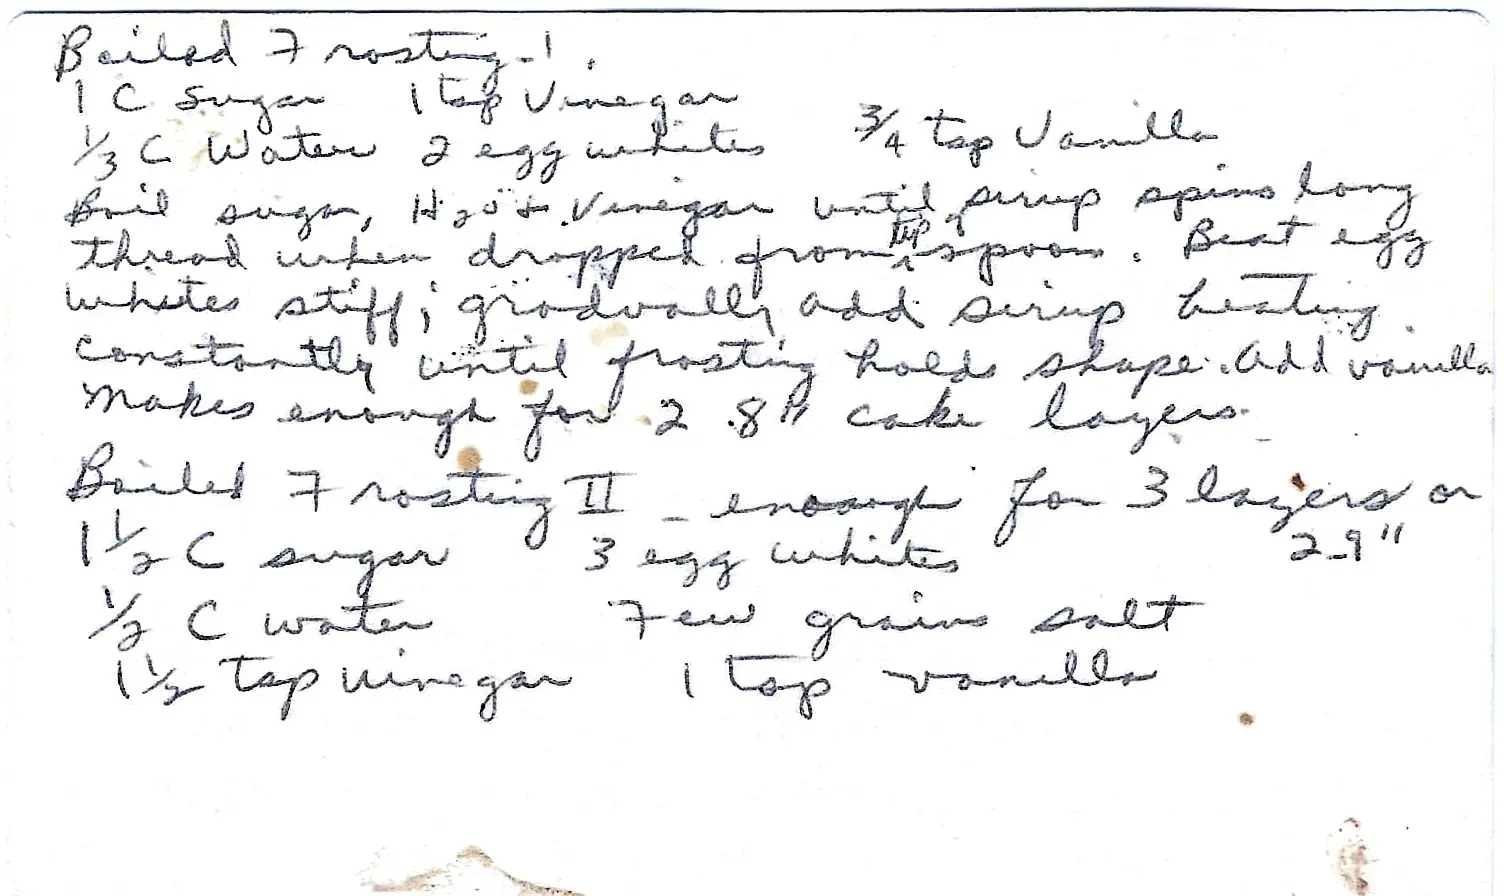 Boiled Frosting - 1.
1 C Sugar 1 tsp Vinegar
1/3 C Water 2 egg whites 3/4 tsp Vanilla
Boil sugar, H2O + Vinegar until sirup spins long
thread when dropped from tip of spoon. Beat egg
whites stiff; gradually add sirup beating
constantly until frosting holds shape. Add vanilla
Makes enough for 2 8" cake layers.
Boiled Frosting II - enough for 3 layers or
1 1/2 C sugar 3 egg whites 2-9"
1/2 C water Few grains salt
1 1/2 tsp vinegar 1 tsp vanilla